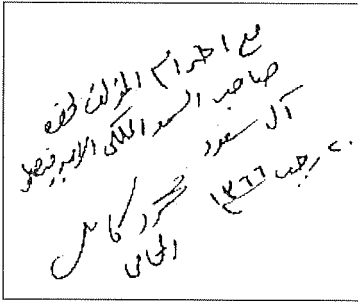 مع احترام المؤلف لحضرة
صاحب السمو الملكي الأمير فيصل
آل سعود
٢٠ رجب ١٣٦٦
كامل
المحامي